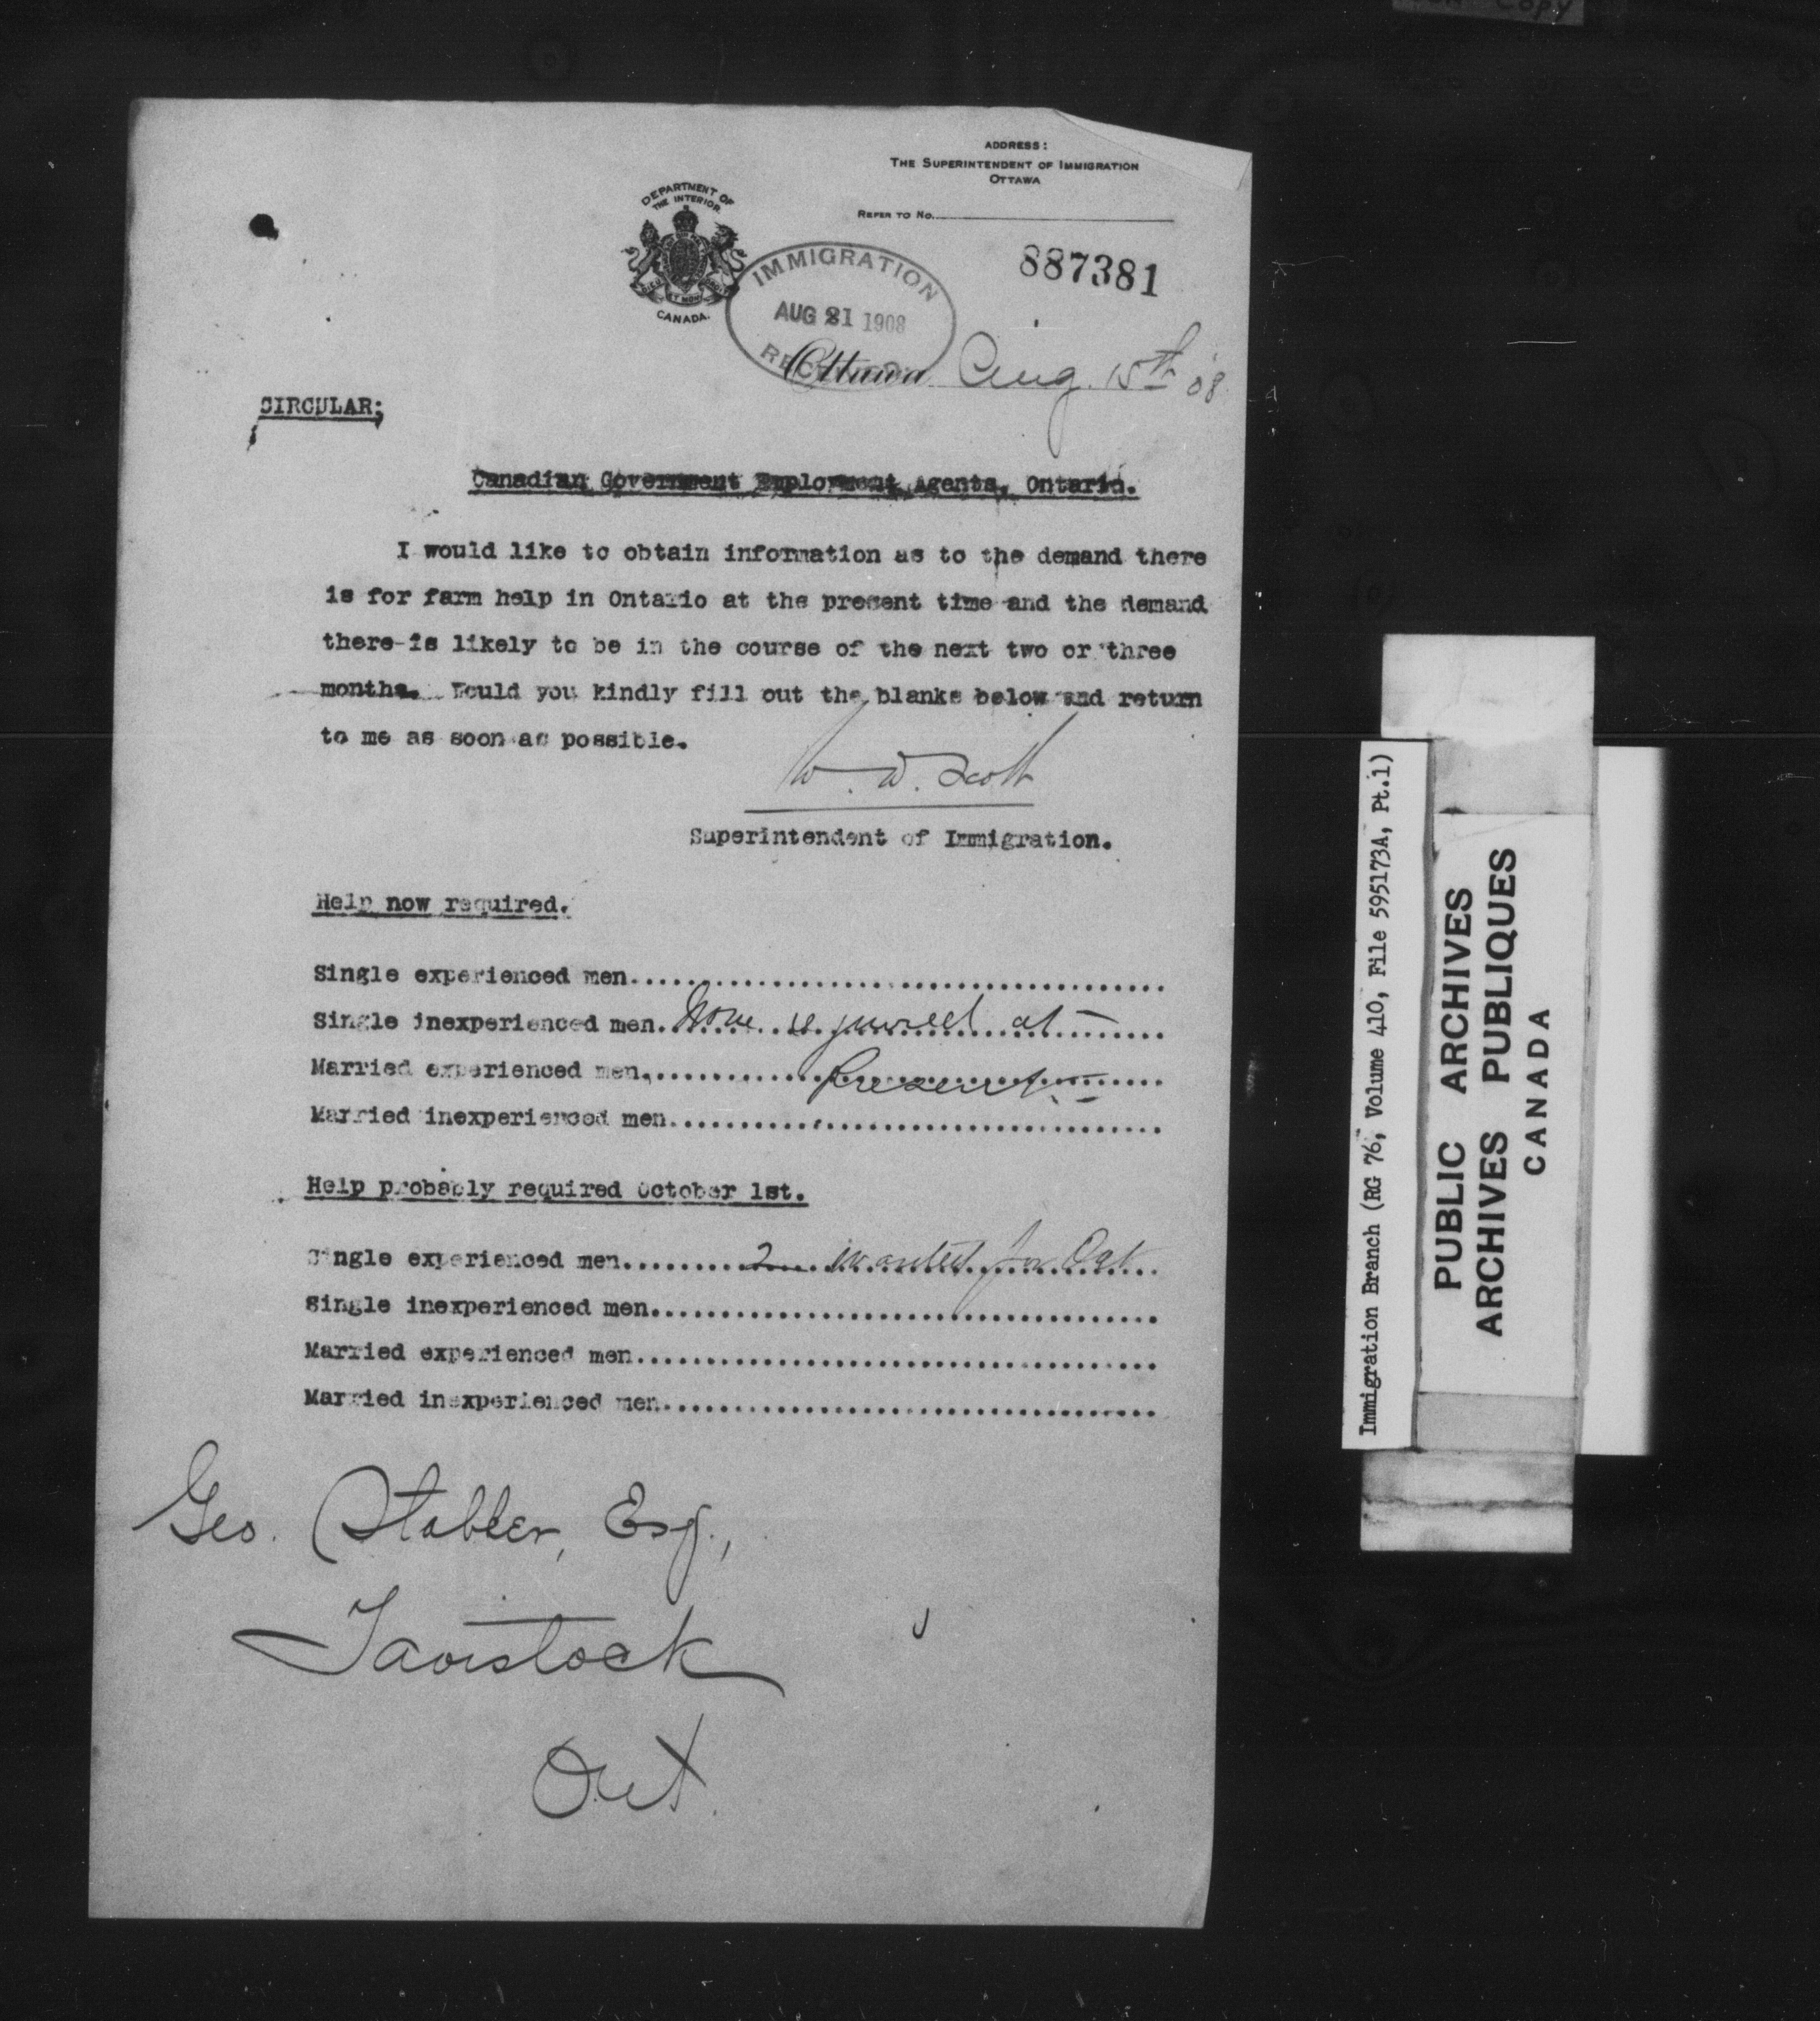 Copy
ADDRESS:
THE SUPERINTENDENT OF IMMIGRATION
OTTAWA
REFER TO No.
DEPARTMENT OF
THE INTERIOR
CANADA.
887381
IMMIGRATION
AUG 21 1908
Ottawa Aug. 15th '08
CIRCULAR;
Canadian Government Employment Agents, Ontario.
I would like to obtain information as to the demand there
is for farm help in Ontario at the present time and the demand
there is likely to be in the course of the next two or three
months. Would you kindly fill out the blanks below and return
to me as soon as possible.
W. D. Scott
Superintendent of Immigration.
Help now required.
Single experienced men.......................................
Single inexperienced men. None required at
Married experienced men. present.
Married inexperienced men....................................
Help probably required October 1st.
Single experienced men.......... 2 wanted for Oct.
Single inexperienced men.....................................
Married experienced men......................................
Married inexperienced men....................................
Geo. Stabler, Esq.,
Tavistock
Ont.
Immigration Branch (RG 76, Volume 410, File 595173A, Pt.1)
PUBLIC ARCHIVES
ARCHIVES PUBLIQUES
CANADA